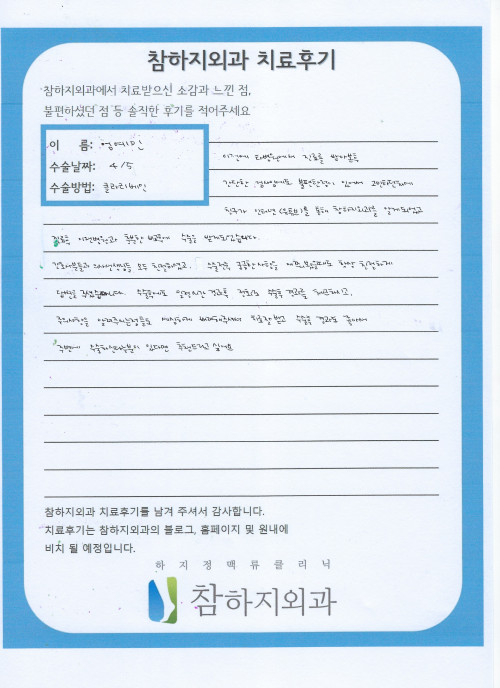 참하지외과 치료후기
참하지외과에서 치료받으신 소감과 느낀 점,
불편하셨던 점 등 솔직한 후기를 적어주세요
이 름: 엄예민
수술날짜: 4/5
수술방법: 클라리베인
이전에 타병원에서 진료를 받아봤을
간단한 검사에도 불편한점이 있어서 고민하던차에
친구가 인터넷(유튜브)를 통해 참하지외과를 알게되었고
진료후 이전병원과 행복한 비교에 수술을 받게되었습니다.
간호사분들과 의사선생님들 모두 친절하셨고. 수술전후 궁금한사항을 여쭤보았을때도 항상 친절하게
답변을 주셨습니다. 수술후에도 일정시간 경과후 전화로 수술 경과를 체크하시고,
주의사항을 알려주시는점들도 세심하게 배려해주셔서 치료잘 받고 수술후 경과도 좋아서
주변에 수술하실분이 있다면 추천드리고 싶어요
참하지외과 치료후기를 남겨 주셔서 감사합니다.
치료후기는 참하지외과의 블로그, 홈페이지 및 원내에
비치 될 예정입니다.
하지정맥류클리닉
참하지외과